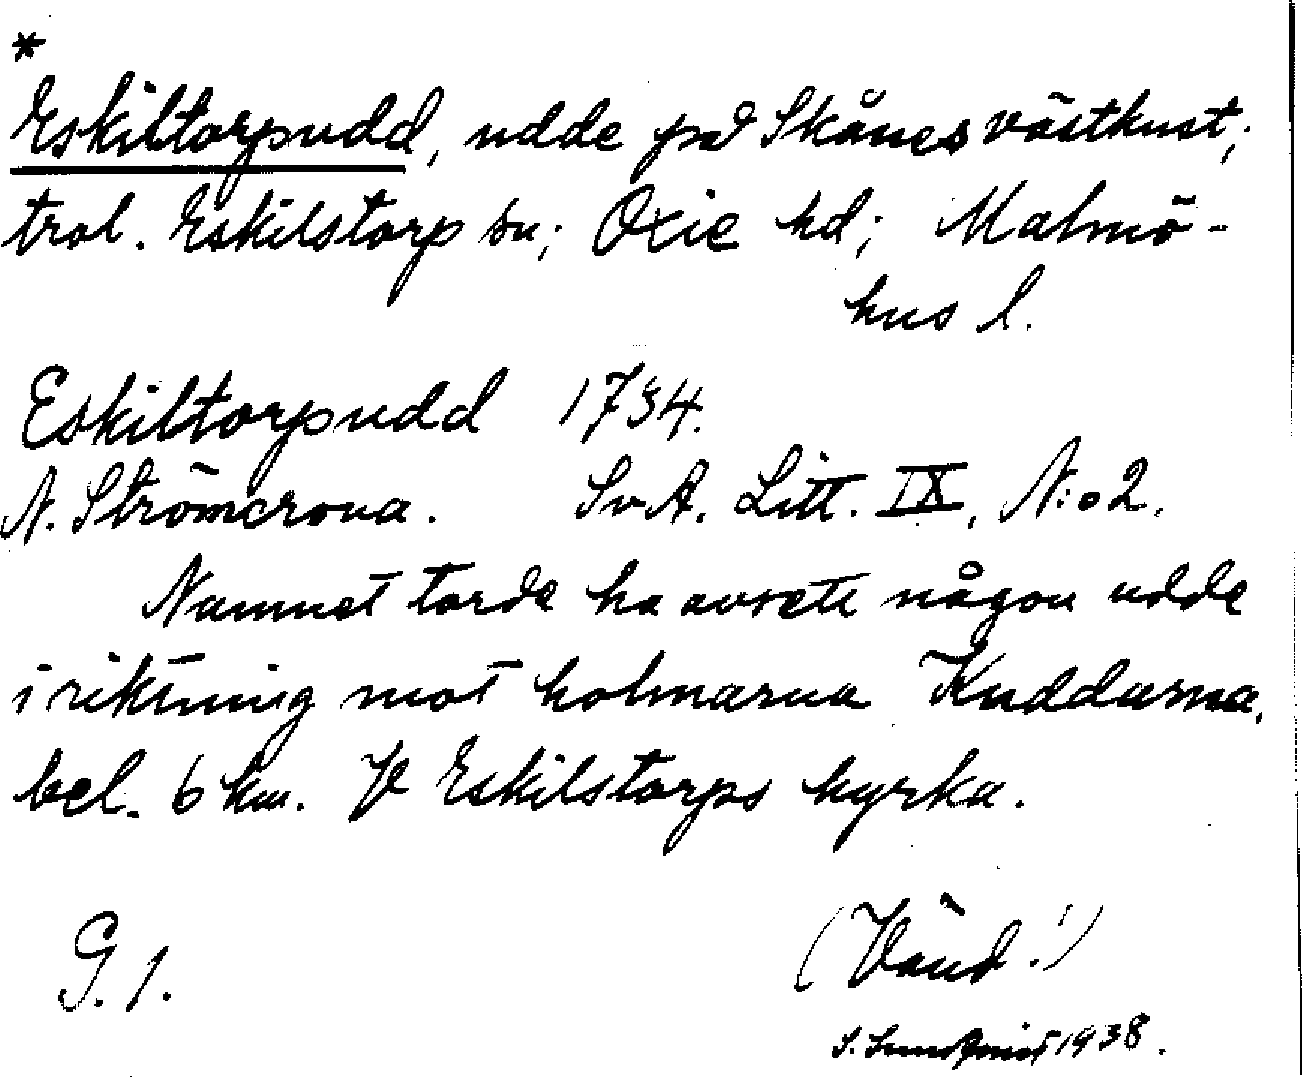 *
Eskiltorpudd, udde på Skånes västkust;
trol. Eskilstorp sn; Oxie hd; Malmö-
hus l.
Eskiltorpudd 1734.
N. Strömcrona. SvA. Litt. IX, N:o 2.
Namnet torde ha avsett någon udde
i riktning mot holmarna Kuddarna,
bel. 6 km. V Eskilstorps kyrka.
G. 1.
(Vänd!)
S. 1938.